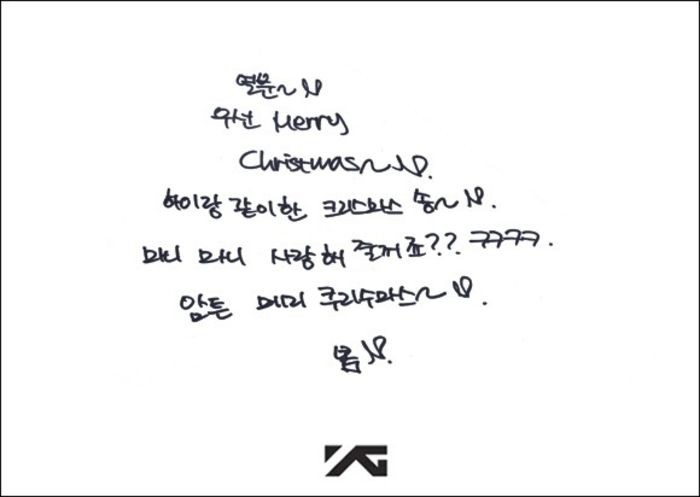 열분~♡
우선 Merry
Christmas~♡.
하이랑 같이한 크리스마스 송~♡.
마니 마니 사랑해 줄꺼죠?? ㅋㅋㅋㅋ.
암튼 메리 쿠리수마스~♡.
봄♡.
YG